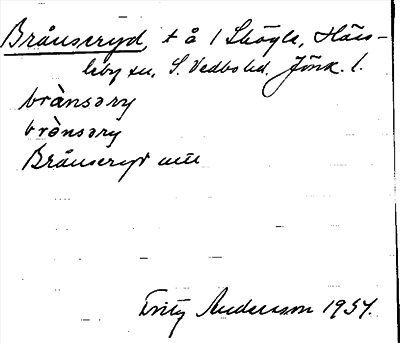 Brånseryd, t å / Skögle, Häss-
leby sn, S. Vedbo hd. Jönk. l.
brȧnsəry
brȧnsəry
Brånseryd
Fritz Andersson 1934.